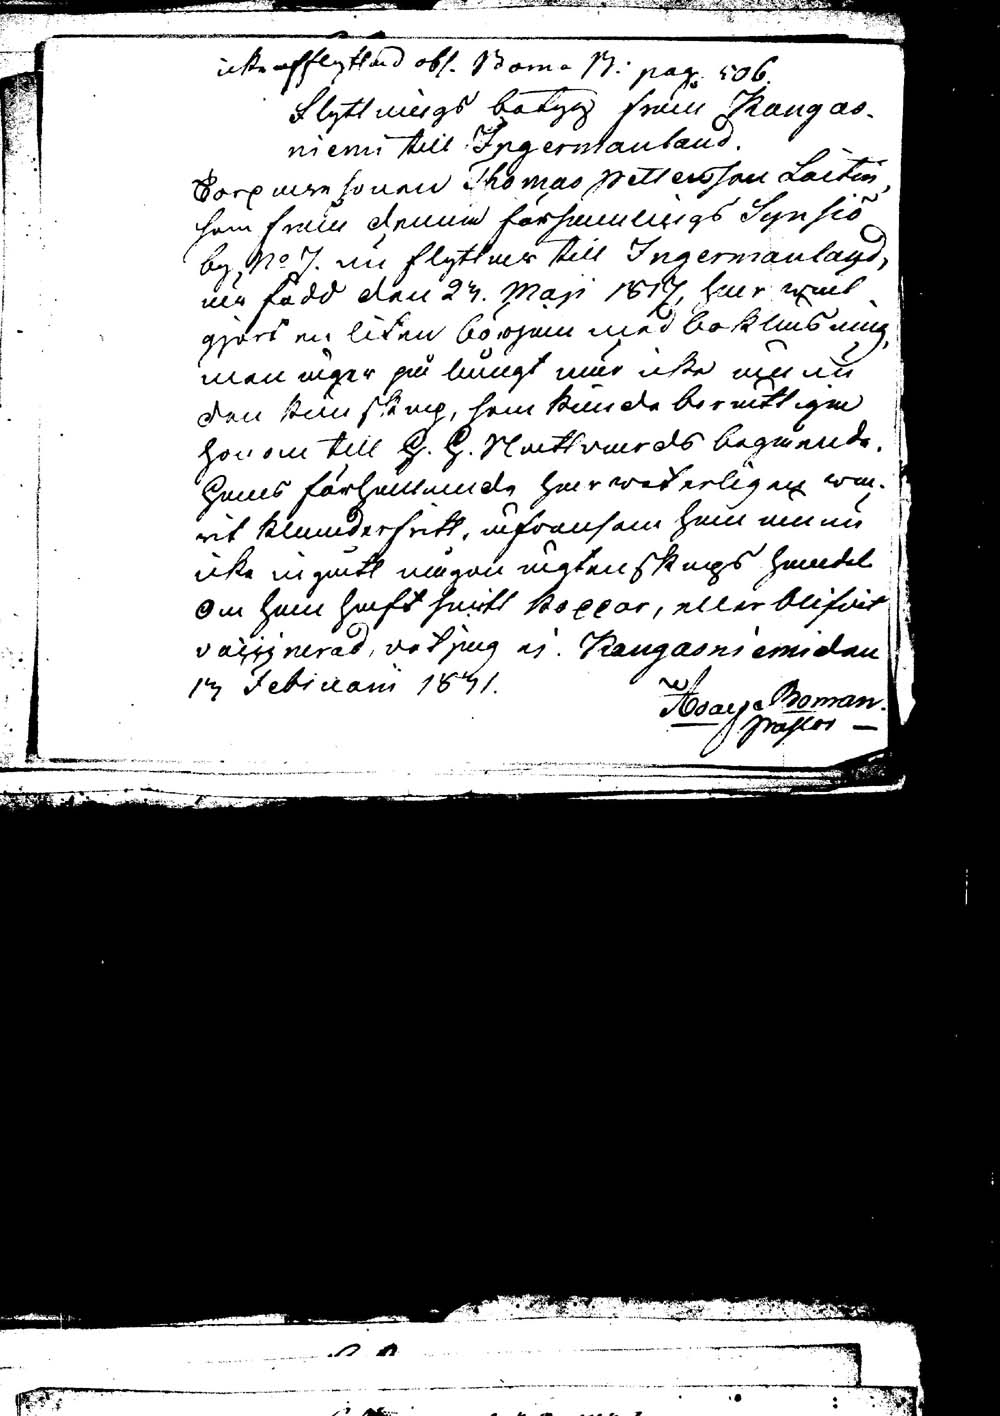 icke afflyttad obs. Komm. B: pag. 506.
Flyttnings betyg från Kangas-
niemi till Ingermanland.
Torparesonen Thomas Pettersson Laitin,
som från denna församlings Synsiö
by, No 7. nu flyttar till Ingermanland,
är född den 23. Maji 1817, har wäl
gjort en liten början med bokläsning,
men äger på långt när icke ännu
den kunskap, som kunde berättiga
honom till H. H. Nattvards begående.
Hans förhållande har weterligen wa-
rit klanderfritt, äfvensom han ännu
icke ingått någon ägtenskaps handel
Om han haft smitt koppor, eller blifvit
vaccinerad, vet jag ej. Kangasniemi den
13 Februarii 1831.
Boman.
Pastor